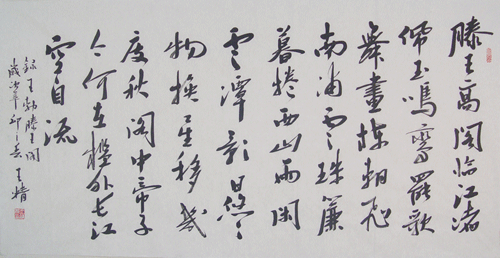 滕王高阁临江渚
佩玉鸣鸾罢歌
舞画栋朝飞
南浦云珠簾
暮捲西山雨闲
云潭影日悠〻
物换星移几
度秋阁中帝子
今何在槛外长江
空自流
录王勃滕王阁